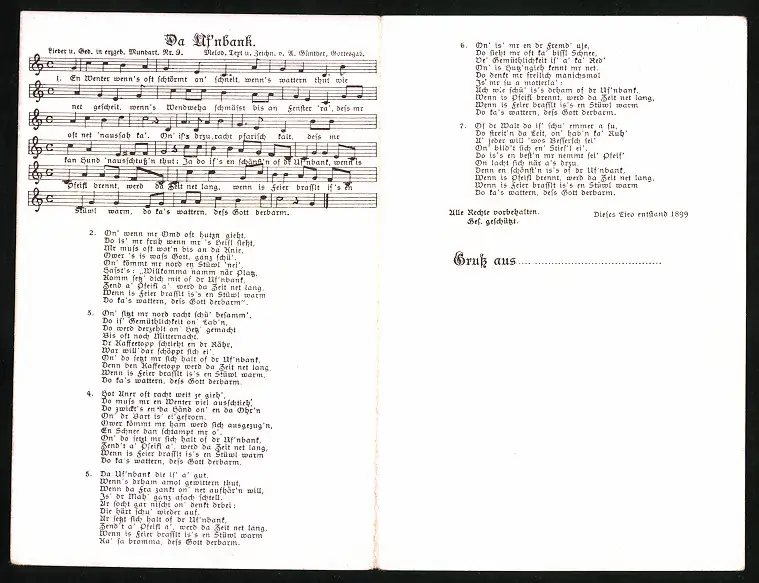 Da Uf'nbank.
Lieder u. Ged. in erzgeb. Mundart. Nr. 9. Melod. Text u. Zeichn. v. A. Günther, Gottesgab.
1. En Wenter wenn's oft schtörmt on' schneit, wenn's wattern thut wie
net gescheit, wenn's Wendweha schmässt bis an Fenster 'ra', dess mr
oft net 'naussah ka'. On' is's drzu racht psarisch kalt, dess mr
kan Hund 'nausschutz'n thut: Ja do is's en schönst'n of dr Uf'nbank, wenn is
Pfeifl brennt, werd da Zeit net lang, wenn is Feier brasslt is's en
Stüwl warm, do ka's wattern, dess Gott derbarm.
2. On' wenn mr Omd oft hutzn gieht,
Do is' mr fruh wenn mr 's Heisl sieht,
Mr muss oft wot'n bis an da Knie,
Ower 's is wass Gott, ganz schü'.
On' kömmt mr nord en Stüwl 'nei',
Hasst's: „Willkomma namm mär Platz,
Komm setz' dich mit of dr Uf'nbank,
Zend a' Pfeifl a' werd da Zeit net lang,
Wenn is Feier brasslt is's en Stüwl warm
Do ka's wattern, dess Gott derbarm".
3. On' sitzt mr nord racht schü' besamm',
Do is' Gemüthlichkeit on' Lab'n,
Do werd derzehlt on' Hetz' gemacht
Bis oft noch Mitternacht.
Dr Kaffeetopp schtieht en dr Röhr,
War will dar schöppt sich ei'.
On' do setzt mr sich halt of dr Uf'nbank,
Denn ben Kaffeetopp werd da Zeit net lang,
Wenn is Feier brasslt is's en Stüwl warm,
Do ka's wattern, dess Gott derbarm.
4. Hot Aner oft racht weit ze gieh',
Do muss mr en Wenter viel ausschtieh',
Do zwickt's en da Händ on' en da Ohr'n
On' dr Bart is' ei'gefrorn.
Ower kömmt mr ham werd sich ausgezug'n,
En Schnee dan schtampt mr o'.
On' do setzt mr sich halt of dr Uf'nbank,
Zend't a' Pfeifl a', werd da Zeit net lang,
Wenn is Feier brasslt is's en Stüwl warm
Do ka's wattern, dess Gott derbarm.
5. Da Uf'nbank die is' a' gut.
Wenn's drham amol gewittern thut,
Wenn da Fra zankt on' net aufhör'n will,
Is' dr Mah' ganz afach schtell.
Ar socht gar nischt on' denkt drbei:
Die härt schu' wieder auf.
Ar setzt sich halt of dr Uf'nbank,
Zend't a' Pfeifl a', werd da Zeit net lang,
Wenn is Feier brasslt is's en Stüwl warm
Ka' sa bromma, dess Gott derbarm.
6. On' is' mr en dr Fremd' use,
Do sieht mr oft ka' bissl Schnee,
De' Gemüthlichkeit is' a' ka' Red'
On' is Hutz'ngieh kennt mr net.
Do denkt mr freilich manichsmol
Is' mr su a motterla':
Ach wie schü' is's drham of dr Uf'nbank,
Wenn is Pfeifl brennt, werd da Zeit net lang,
Wenn is Feier brasslt is's en Stüwl warm
Do ka's wattern, dess Gott derbarm.
7. Of dr Walt do is' schu' emmer a su,
Do streit'n da Leit, on' hab'n ka' Ruh'
U' jeder will 'wos Bessersch sei'
On' bild't sich en' Stiefl ei'.
Do is's en best'n mr nemmt sei' Pfeif'
On lacht sich när a's drzu.
Denn en schönst'n is's of dr Uf'nbank,
Wenn is Pfeifl brennt, werd da Zeit net lang,
Wenn is Feier brasslt is's en Stüwl warm
Do ka's wattern, dess Gott derbarm.
Alle Rechte vorbehalten. Dieses Lied entstand 1899
Ges. geschützt.
Gruß aus